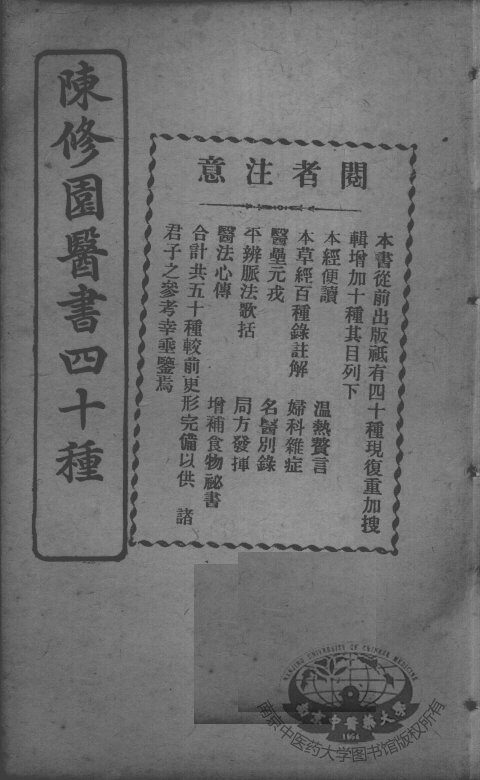 閱者注意
本書從前出版祇有四十種現復重加搜
輯增加十種其目列下
本經便讀　溫熱贅言
本草經百種錄註解　婦科雜症
醫壘元戎　名醫別錄
平辨脈法歌括　局方發揮
醫法心傳　增補食物祕書
合計共五十種較前更形完備以供　諸
君子之參考幸垂鑒焉
陳修園醫書四十種
NANJING UNIVERSITY OF CHINESE MEDICINE
南京中醫藥大學
1954
南京中医药大学图书馆版权所有